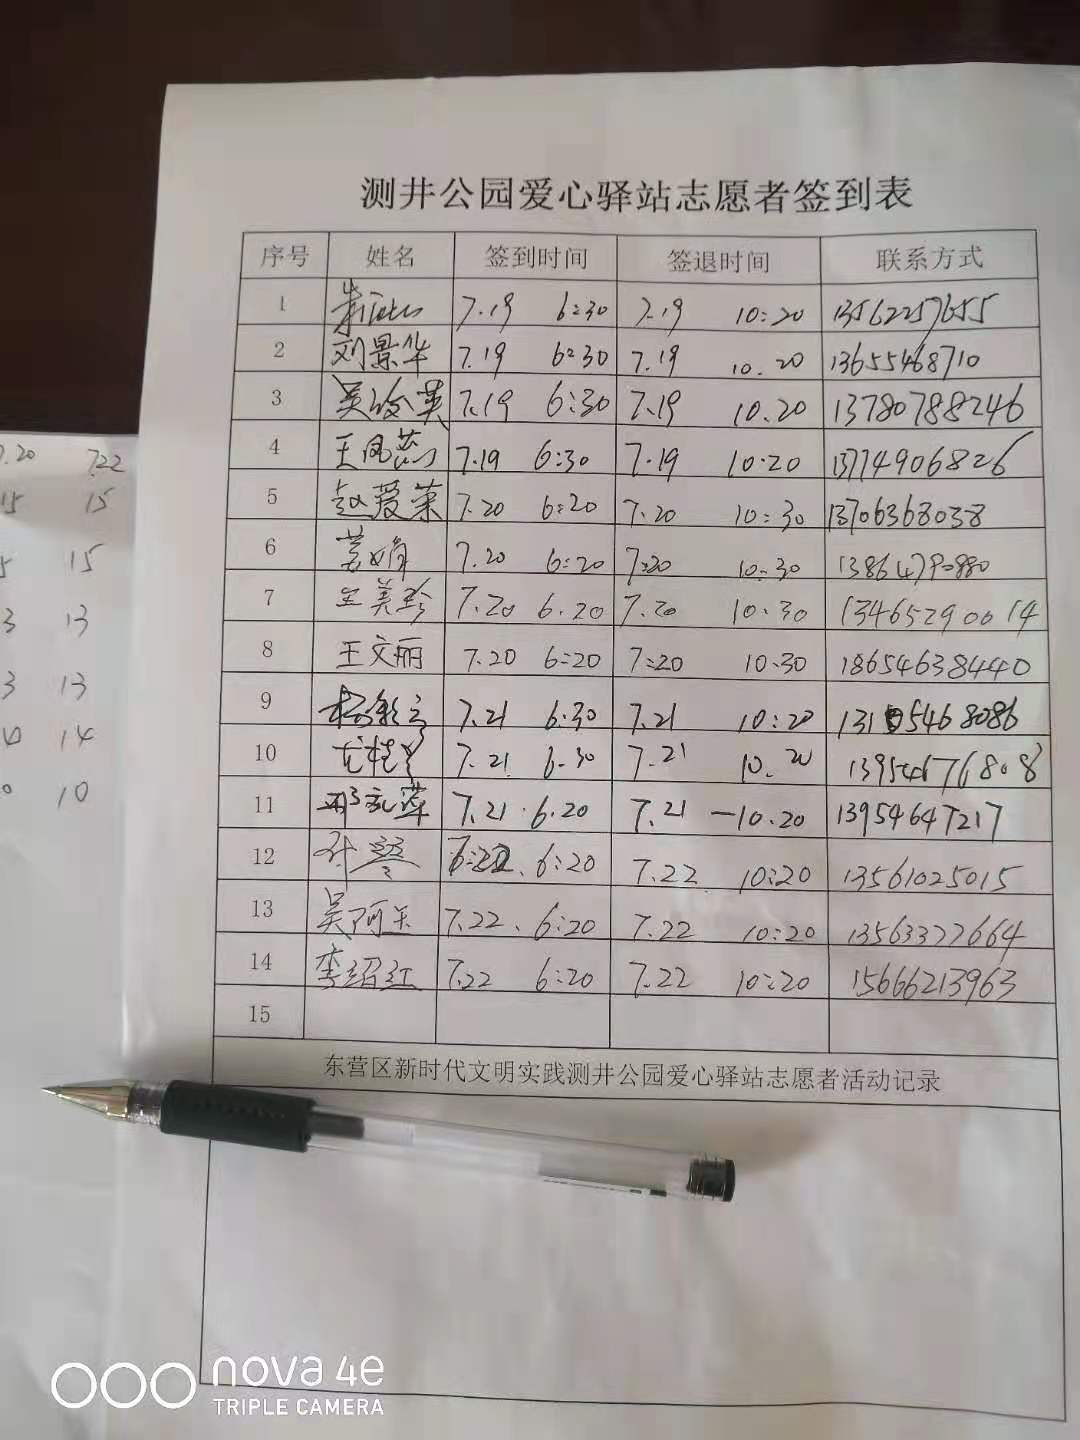 测井公园爱心驿站志愿者签到表
序号 姓名 签到时间 签退时间 联系方式
1 7.19 6:30 7.19 10:20 13562257655
2 刘景华 7.19 6:30 7.19 10.20 13655468710
3 7.19 6:30 7.19 10.20 13780788246
4 王凤 7.19 6:30 7.19 10.20 13774906826
5 赵爱荣 7.20 6:20 7.20 10:30 13706368038
6 7.20 6:20 7:20 10:30
7 王美珍 7.20 6.20 7.20 10.30 13465290014
8 王文丽 7.20 6:20 7:20 10.30 18654638440
9 7.21 6.30 7.21 10:20
10 7.21 6.30 7.21 10.20 13954676808
11 7.21 6.20 7.21 —10.20 13954647217
12 6:20 7.22 10:20 13561025015
13 吴阿玉 7.22. 6:20 7.22 10:20 13563327664
14 李绍红 7.22 6:20 7.22 10:20 15666213963
15
东营区新时代文明实践测井公园爱心驿站志愿者活动记录
7.20 722
15 15
5 15
3 13
3 13
14
0 10
nova 4e
TRIPLE CAMERA